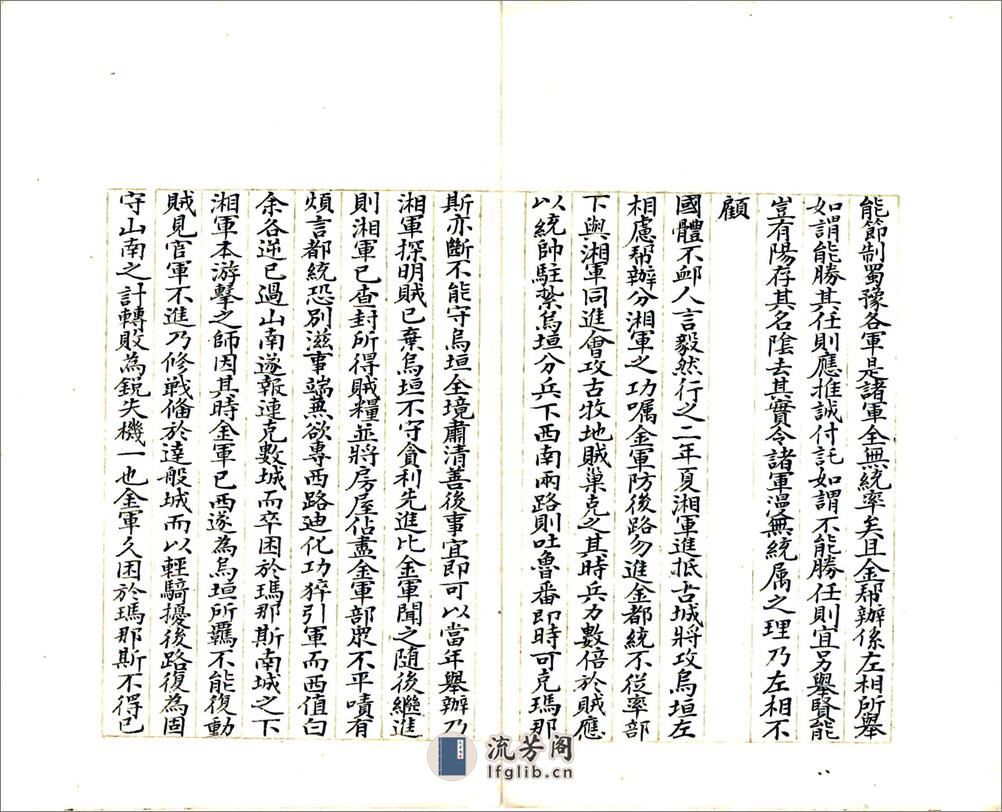 能節制蜀豫各軍是諸軍全無統率矣且金帮辦係左相所舉
如謂能勝其任則應推誠付託如謂不能勝任則宜另舉賢能
豈有陽存其名陰去其實令諸軍漫無統属之理乃左相不
顧
國體不邺人言毅然行之二年夏湘軍進抵古城將攻烏垣左
相慮帮辦分湘軍之功嘱金軍防後路勿進金都統不從率部
下與湘軍同進會攻古牧地賊巢克之其時兵力數倍於賊應
以統帥駐紮烏垣分兵下西南兩路則吐魯番即時可克瑪那
斯亦斷不能守烏垣全境肅清善後事宜即可以當年舉辦乃
湘軍探明賊已棄烏垣不守貪利先進比金軍聞之隨後繼進
則湘軍已查封所得賊糧並將房屋佔盡金軍部衆不平嘖有
煩言都統恐别滋事端兼欲專西路迪化功猝引軍而西值白
余各逆已過山南遂報連克數城而卒困於瑪那斯南城之下
湘軍本游擊之師因其時金軍已西遂為烏垣所羈不能復動
賊見官軍不進乃修戰僃於達般城而以輕騎擾後路復為固
守山南之計轉敗為銳失機一也金軍久困於瑪那斯不得已
流芳阁
lfglib.cn